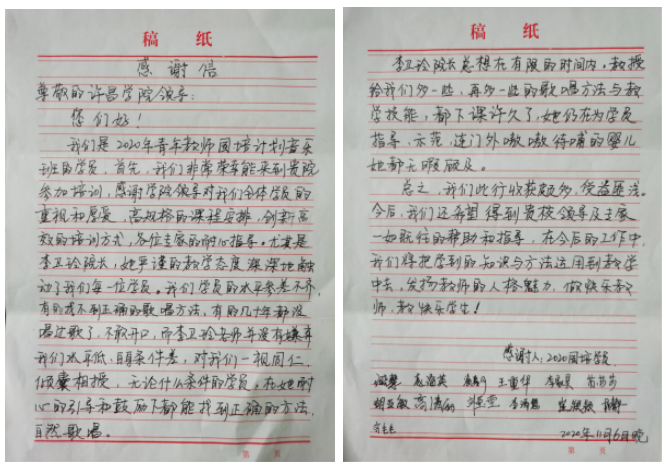 稿 纸
感谢信
尊敬的许昌学院领导:
您们好!
我们是2020年青年教师国培计划音乐
班的学员,首先,我们非常荣幸能来到贵院
参加培训,感谢学院领导对我们全体学员的
重视和厚爱,高规格的课程安排,创新高
效的培训方式,各位专家的耐心指导。尤其是
李卫玲院长,她严谨的教学态度深深地触
动了我们每一位学员。我们学员的水平参差不齐,
有的找不到正确的歌唱方法,有的几十年都没
唱过歌了,不敢开口,而李卫玲老师并没有嫌弃
我们水平低、自身条件差,对我们一视同仁,
倾囊相授,无论什么条件的学员,在她耐
心的引导和鼓励下都能找到正确的方法,
自然歌唱。
第 页
稿 纸
李卫玲院长总想在有限的时间内,教授
给我们多一些,再多一些的歌唱方法与教
学技能,都下课许久了,她仍在为学员
指导、示范,连门外嗷嗷待哺的婴儿
她都无暇顾及。
总之,我们此行收获颇多,受益匪浅。
今后,我们还希望得到贵校领导及专家
一如既往的帮助和指导,在今后的工作中,
我们将把学到的知识与方法运用到教学
中去,发扬教师的人格魅力,做快乐教
师,教快乐学生!
感谢人:2020国培学员
2020年11月6日晚
第 页